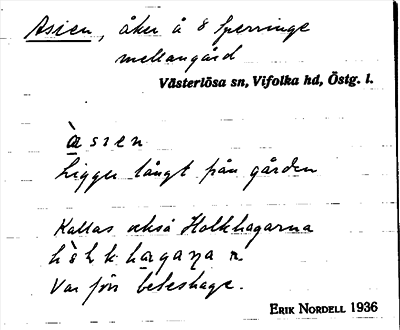 Asien, åker å 8 Sperringe
mellangård
Västerlösa sn, Vifolka hd, Östg. l.
àsıen
Ligger långt från gården
Kallas också Holkhagarna
hòlkhagaṇa
Var förr beteshage.
ERIK NORDELL 1936